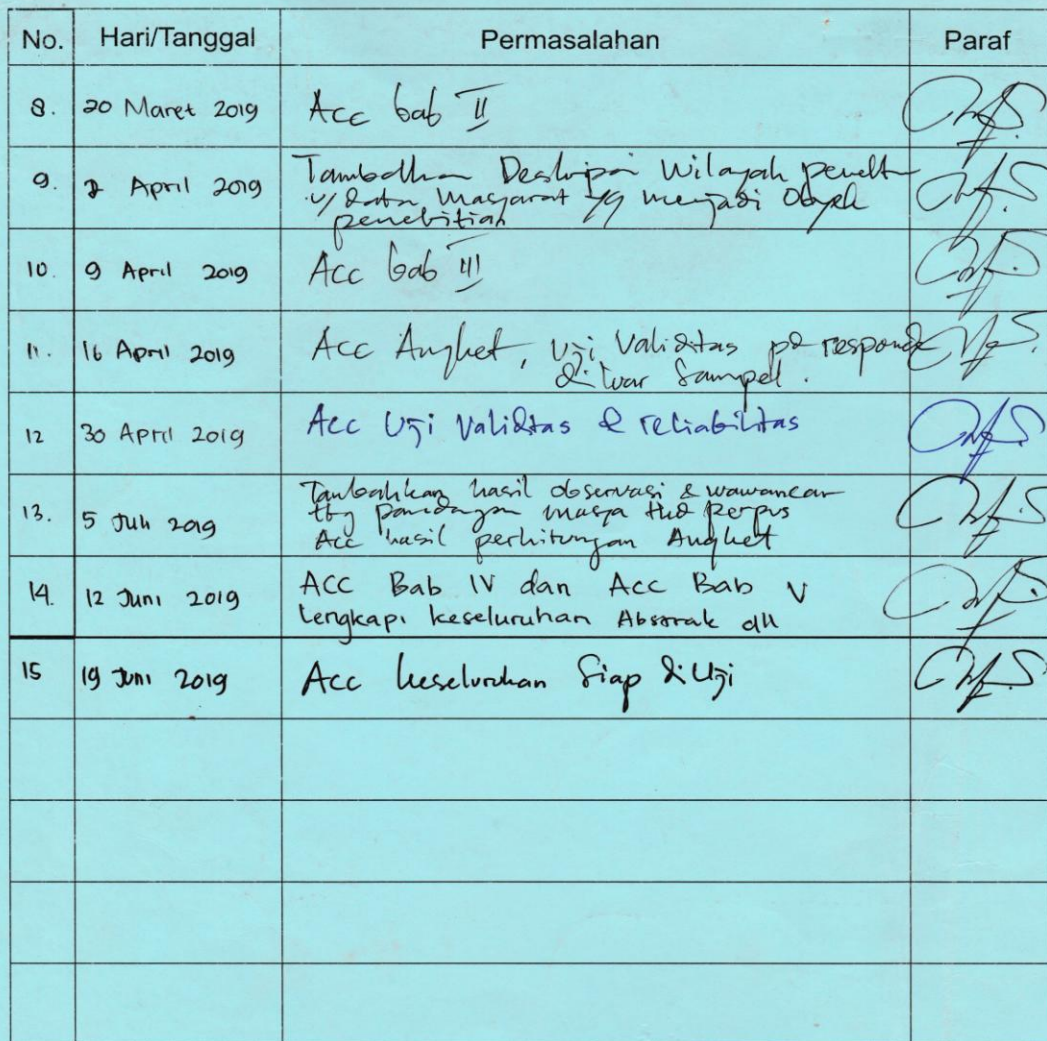 No. Hari/Tanggal Permasalahan Paraf
8. 20 Maret 2019 Acc bab II
9. 2 April 2019 Tambahkan Deskripsi Wilayah penelt
u/ data Masyarat yg menjadi Obyek
penelitian
10. 9 April 2019 Acc bab III
11. 16 April 2019 Acc Angket, Uji Validitas pd responde
diluar Sampel.
12 30 April 2019 Acc Uji Validitas & reliabilitas
13. 5 Juli 2019 Tambahkan hasil observasi & wawancar
ttg pandangan masya thd perpus
Acc hasil perhitungan Angket
14. 12 Juni 2019 ACC Bab IV dan Acc Bab V
Lengkapi keseluruhan Absrak dll
15 19 Juni 2019 Acc keseluruhan Siap diUji